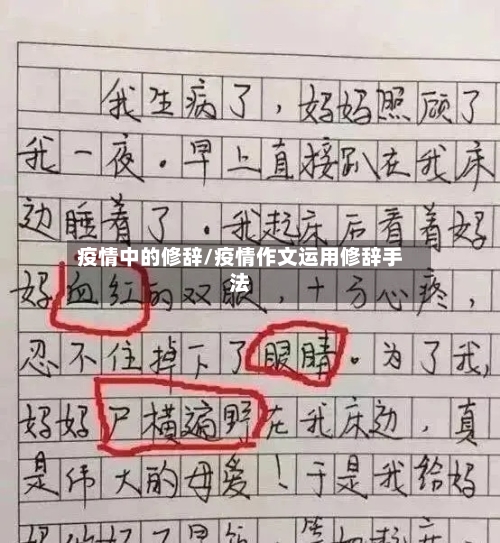 我生病了，妈妈照顾了
我一夜。早上直接趴在我床
边睡着了。我起床后看着妈
疫情中的修辞/疫情作文运用修辞手
法
妈血红的双眼，十分心疼，
忍不住掉下了眼睛。为了我，
妈妈尸横遍野在我床边，真
是伟大的母爱！于是我给妈